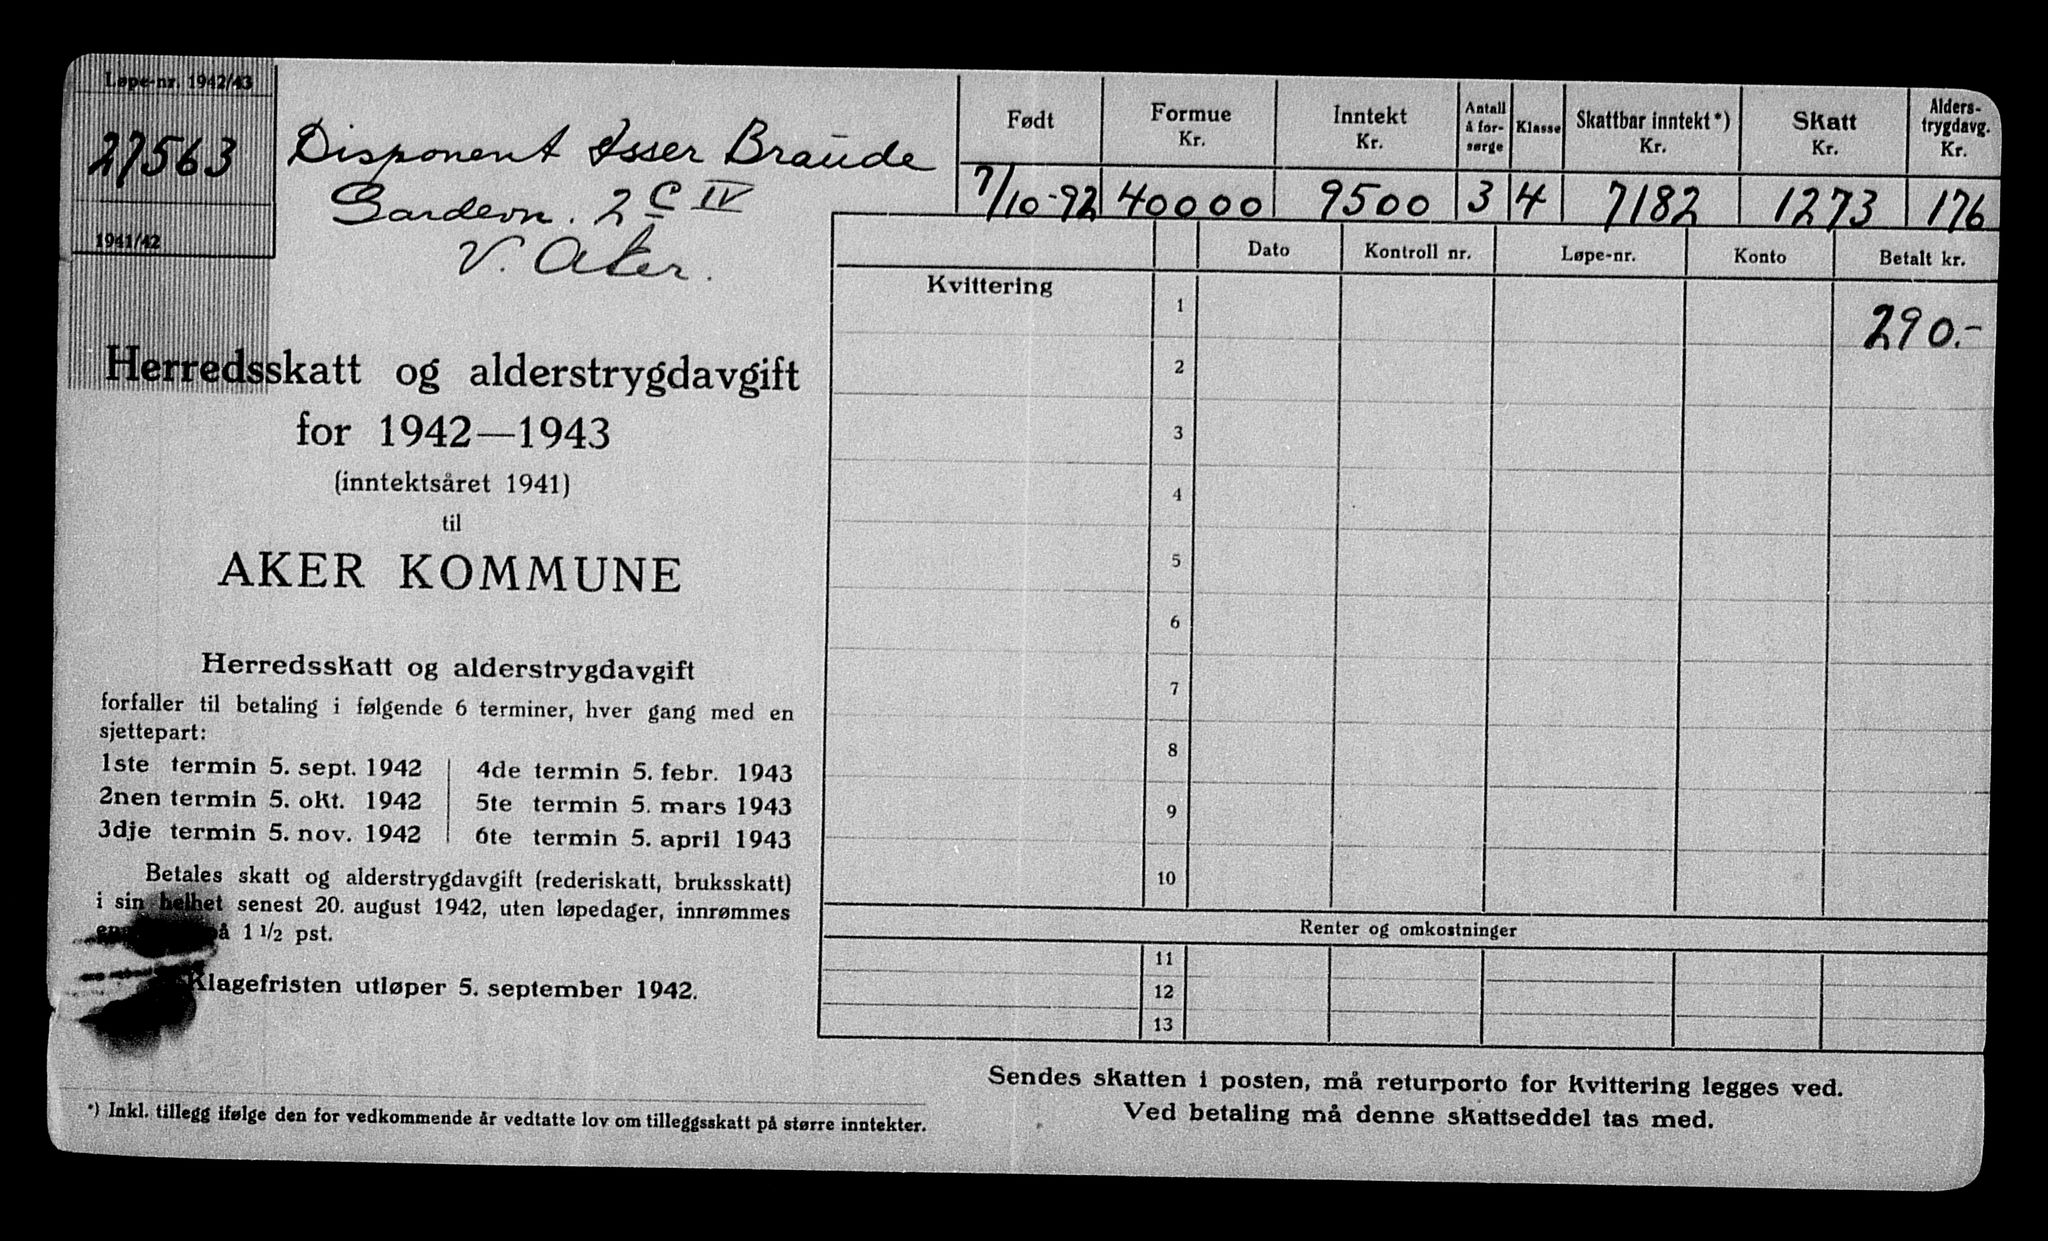 Løpe-nr. 1942/43
27563
1941/42
Disponent Isser Braude
Gardevn. 2 C IV
V. Aker.
Herredsskatt og alderstrygdavgift
for 1942—1943
(inntektsåret 1941)
til
AKER KOMMUNE
Herredsskatt og alderstrygdavgift
forfaller til betaling i følgende 6 terminer, hver gang med en
sjettepart:
1ste termin 5. sept. 1942 | 4de termin 5. febr. 1943
2nen termin 5. okt. 1942 | 5te termin 5. mars 1943
3dje termin 5. nov. 1942 | 6te termin 5. april 1943
Betales skatt og alderstrygdavgift (rederiskatt, bruksskatt)
i sin helhet senest 20. august 1942, uten løpedager, innrømmes
på 1 1/2 pst.
Klagefristen utløper 5. september 1942.
*) Inkl. tillegg ifølge den for vedkommende år vedtatte lov om tilleggsskatt på større inntekter.
Født Formue Kr. Inntekt Kr. Antall å forsørge Klasse Skattbar inntekt *) Kr. Skatt Kr. Alderstrygdavg. Kr.
7/10-92 40000 9500 3 4 7182 1273 176
Dato Kontroll nr. Løpe-nr. Konto Betalt kr.
Kvittering
1 290.-
2
3
4
5
6
7
8
9
10
Renter og omkostninger
11
12
13
Sendes skatten i posten, må returporto for kvittering legges ved.
Ved betaling må denne skattseddel tas med.